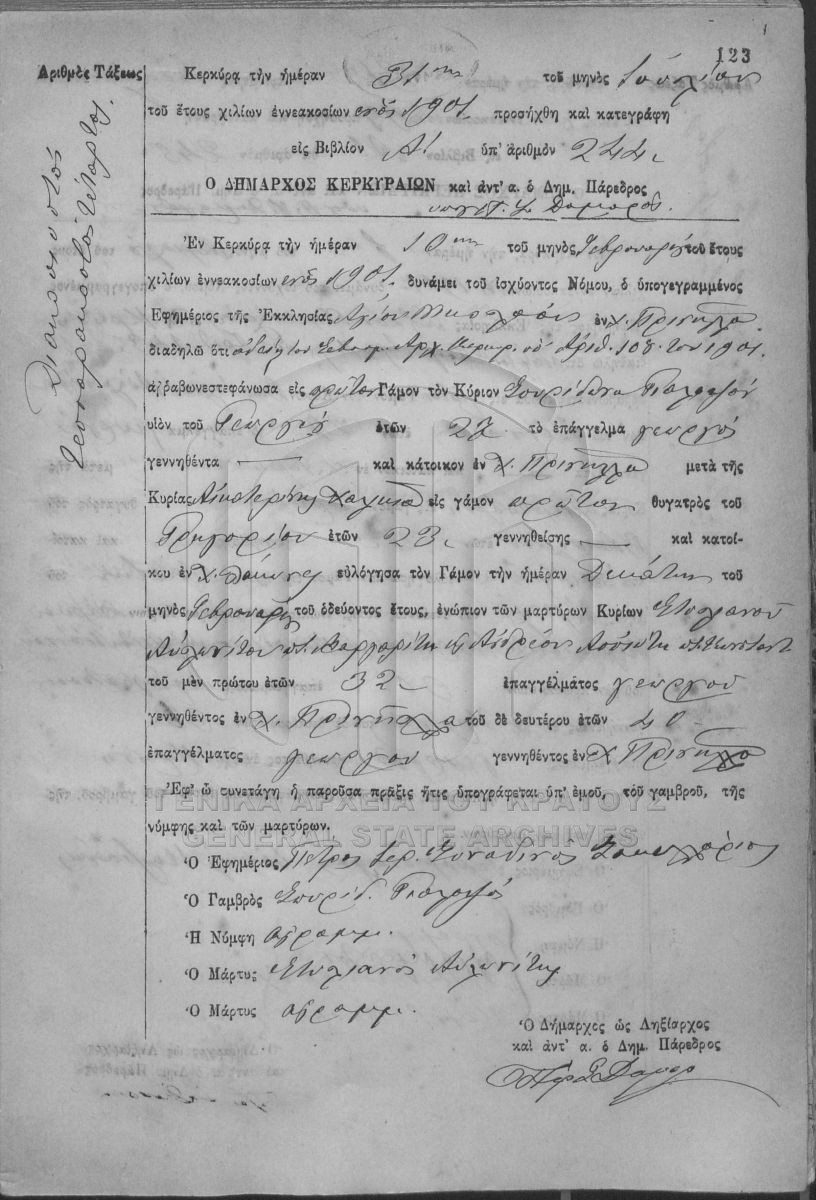 123
Ἀριθμὸς Τάξεως
Διακοσιοστὸς
τεσσαρακοστὸς τέταρτος.
Κερκύρᾳ τὴν ἡμέραν 31ην τοῦ μηνὸς Ἰουλίου
τοῦ ἔτους χιλίων ἐννεακοσίων ἑνὸς 1901 προσήχθη καὶ κατεγράφη
εἰς Βιβλίον Α' ὑπ' ἀριθμὸν 244
Ο ΔΗΜΑΡΧΟΣ ΚΕΡΚΥΡΑΙΩΝ καὶ ἀντ' α. ὁ Δημ. Πάρεδρος
Ἐν Κερκύρᾳ τὴν ἡμέραν 10ην τοῦ μηνὸς Φεβρουαρίου τοῦ ἔτους
χιλίων ἐννεακοσίων ἑνὸς 1901 δυνάμει τοῦ ἰσχύοντος Νόμου, ὁ ὑπογεγραμμένος
Ἐφημέριος τῆς Ἐκκλησίας Ἁγίου Νικολάου ἐν Χ. Πρινύλλα
διαδηλῶ ὅτι ἀδείᾳ τοῦ Σεβασμ. Ἀρχ. Κερκύρ. ὑπ' Ἀριθ. 108 του 1901.
ἀῤῥαβωνεστεφάνωσα εἰς πρῶτον Γάμον τὸν Κύριον Σπυρίδωνα
υἱὸν τοῦ Γεωργίου ἐτῶν 27 τὸ ἐπάγγελμα γεωργὸς
γεννηθέντα — καὶ κάτοικον ἐν Χ. Πρινύλλα μετὰ τῆς
Κυρίας Αἰκατερίνης εἰς γάμον πρῶτον θυγατρὸς τοῦ
Γρηγορίου ἐτῶν 23 γεννηθείσης — καὶ κατοί-
κου ἐν Χ. εὐλόγησα τὸν Γάμον τὴν ἡμέραν Δεκάτην τοῦ
μηνὸς Φεβρουαρίου τοῦ ὁδεύοντος ἔτους, ἐνώπιον τῶν μαρτύρων Κυρίων Στυλιανοῦ
Αὐλωνίτου π. Μαργαρίτη κ Ἀνδρέου
τοῦ μὲν πρώτου ἐτῶν 32 ἐπαγγέλματος γεωργοῦ
γεννηθέντος ἐν Χ. Πρινύλλα τοῦ δὲ δευτέρου ἐτῶν 40
ἐπαγγέλματος γεωργοῦ γεννηθέντος ἐν Χ Πρινύλλα
Ἐφ' ᾧ συνετάγη ἡ παροῦσα πρᾶξις ἥτις ὑπογράφεται ὑπ' ἐμοῦ, τοῦ γαμβροῦ, τῆς
νύμφης καὶ τῶν μαρτύρων.
ΓΕΝΙΚΑ ΑΡΧΕΙΑ ΤΟΥ ΚΡΑΤΟΥΣ
GENERAL STATE ARCHIVES
Ὁ Ἐφημέριος Πέτρος Ἱερ. Συναδινὸς Σακελλάριος
Ὁ Γαμβρὸς Σπυρίδ.
Ἡ Νύμφη ἀγράμμ.
Ὁ Μάρτυς Στυλιανὸς Αὐλωνίτης
Ὁ Μάρτυς ἀγράμμ.
Ὁ Δήμαρχος ὡς Ληξίαρχος
καὶ ἀντ' α. ὁ Δημ. Πάρεδρος